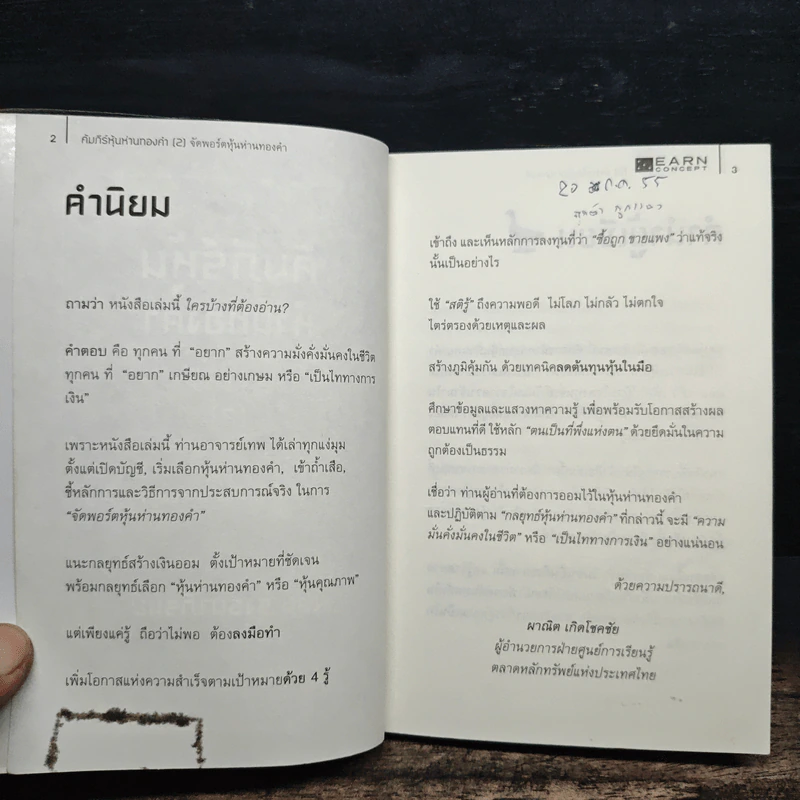 2 คัมภีร์หุ้นห่านทองคำ (2) จัดพอร์ตหุ้นห่านทองคำ
คำนิยม
ถามว่า หนังสือเล่มนี้ ใครบ้างที่ต้องอ่าน?
คำตอบ คือ ทุกคน ที่ "อยาก" สร้างความมั่งคั่งมั่นคงในชีวิต
ทุกคน ที่ "อยาก" เกษียณ อย่างเกษม หรือ "เป็นไททางการ
เงิน"
เพราะหนังสือเล่มนี้ ท่านอาจารย์เทพ ได้เล่าทุกแง่มุม
ตั้งแต่เปิดบัญชี, เริ่มเลือกหุ้นห่านทองคำ, เข้าถ้ำเสือ,
ชี้หลักการและวิธีการจากประสบการณ์จริง ในการ
"จัดพอร์ตหุ้นห่านทองคำ"
แนะกลยุทธ์สร้างเงินออม ตั้งเป้าหมายที่ชัดเจน
พร้อมกลยุทธ์เลือก "หุ้นห่านทองคำ" หรือ "หุ้นคุณภาพ"
แต่เพียงแค่รู้ ถือว่าไม่พอ ต้องลงมือทำ
เพิ่มโอกาสแห่งความสำเร็จตามเป้าหมายด้วย 4 รู้
EARN
CONCEPT
3
20 ก.ค. 55
เข้าถึง และเห็นหลักการลงทุนที่ว่า "ซื้อถูก ขายแพง" ว่าแท้จริง
นั้นเป็นอย่างไร
ใช้ "สติรู้" ถึงความพอดี ไม่โลภ ไม่กลัว ไม่ตกใจ
ไตร่ตรองด้วยเหตุและผล
สร้างภูมิคุ้มกัน ด้วยเทคนิคลดต้นทุนหุ้นในมือ
ศึกษาข้อมูลและแสวงหาความรู้ เพื่อพร้อมรับโอกาสสร้างผล
ตอบแทนที่ดี ใช้หลัก "ตนเป็นที่พึ่งแห่งตน" ด้วยยึดมั่นในความ
ถูกต้องเป็นธรรม
เชื่อว่า ท่านผู้อ่านที่ต้องการออมไว้ในหุ้นห่านทองคำ
และปฏิบัติตาม "กลยุทธ์หุ้นห่านทองคำ" ที่กล่าวนี้ จะมี "ความ
มั่นคั่งมั่นคงในชีวิต" หรือ "เป็นไททางการเงิน" อย่างแน่นอน
ด้วยความปรารถนาดี,
ผาณิต เกิดโชคชัย
ผู้อำนวยการฝ่ายศูนย์การเรียนรู้
ตลาดหลักทรัพย์แห่งประเทศไทย